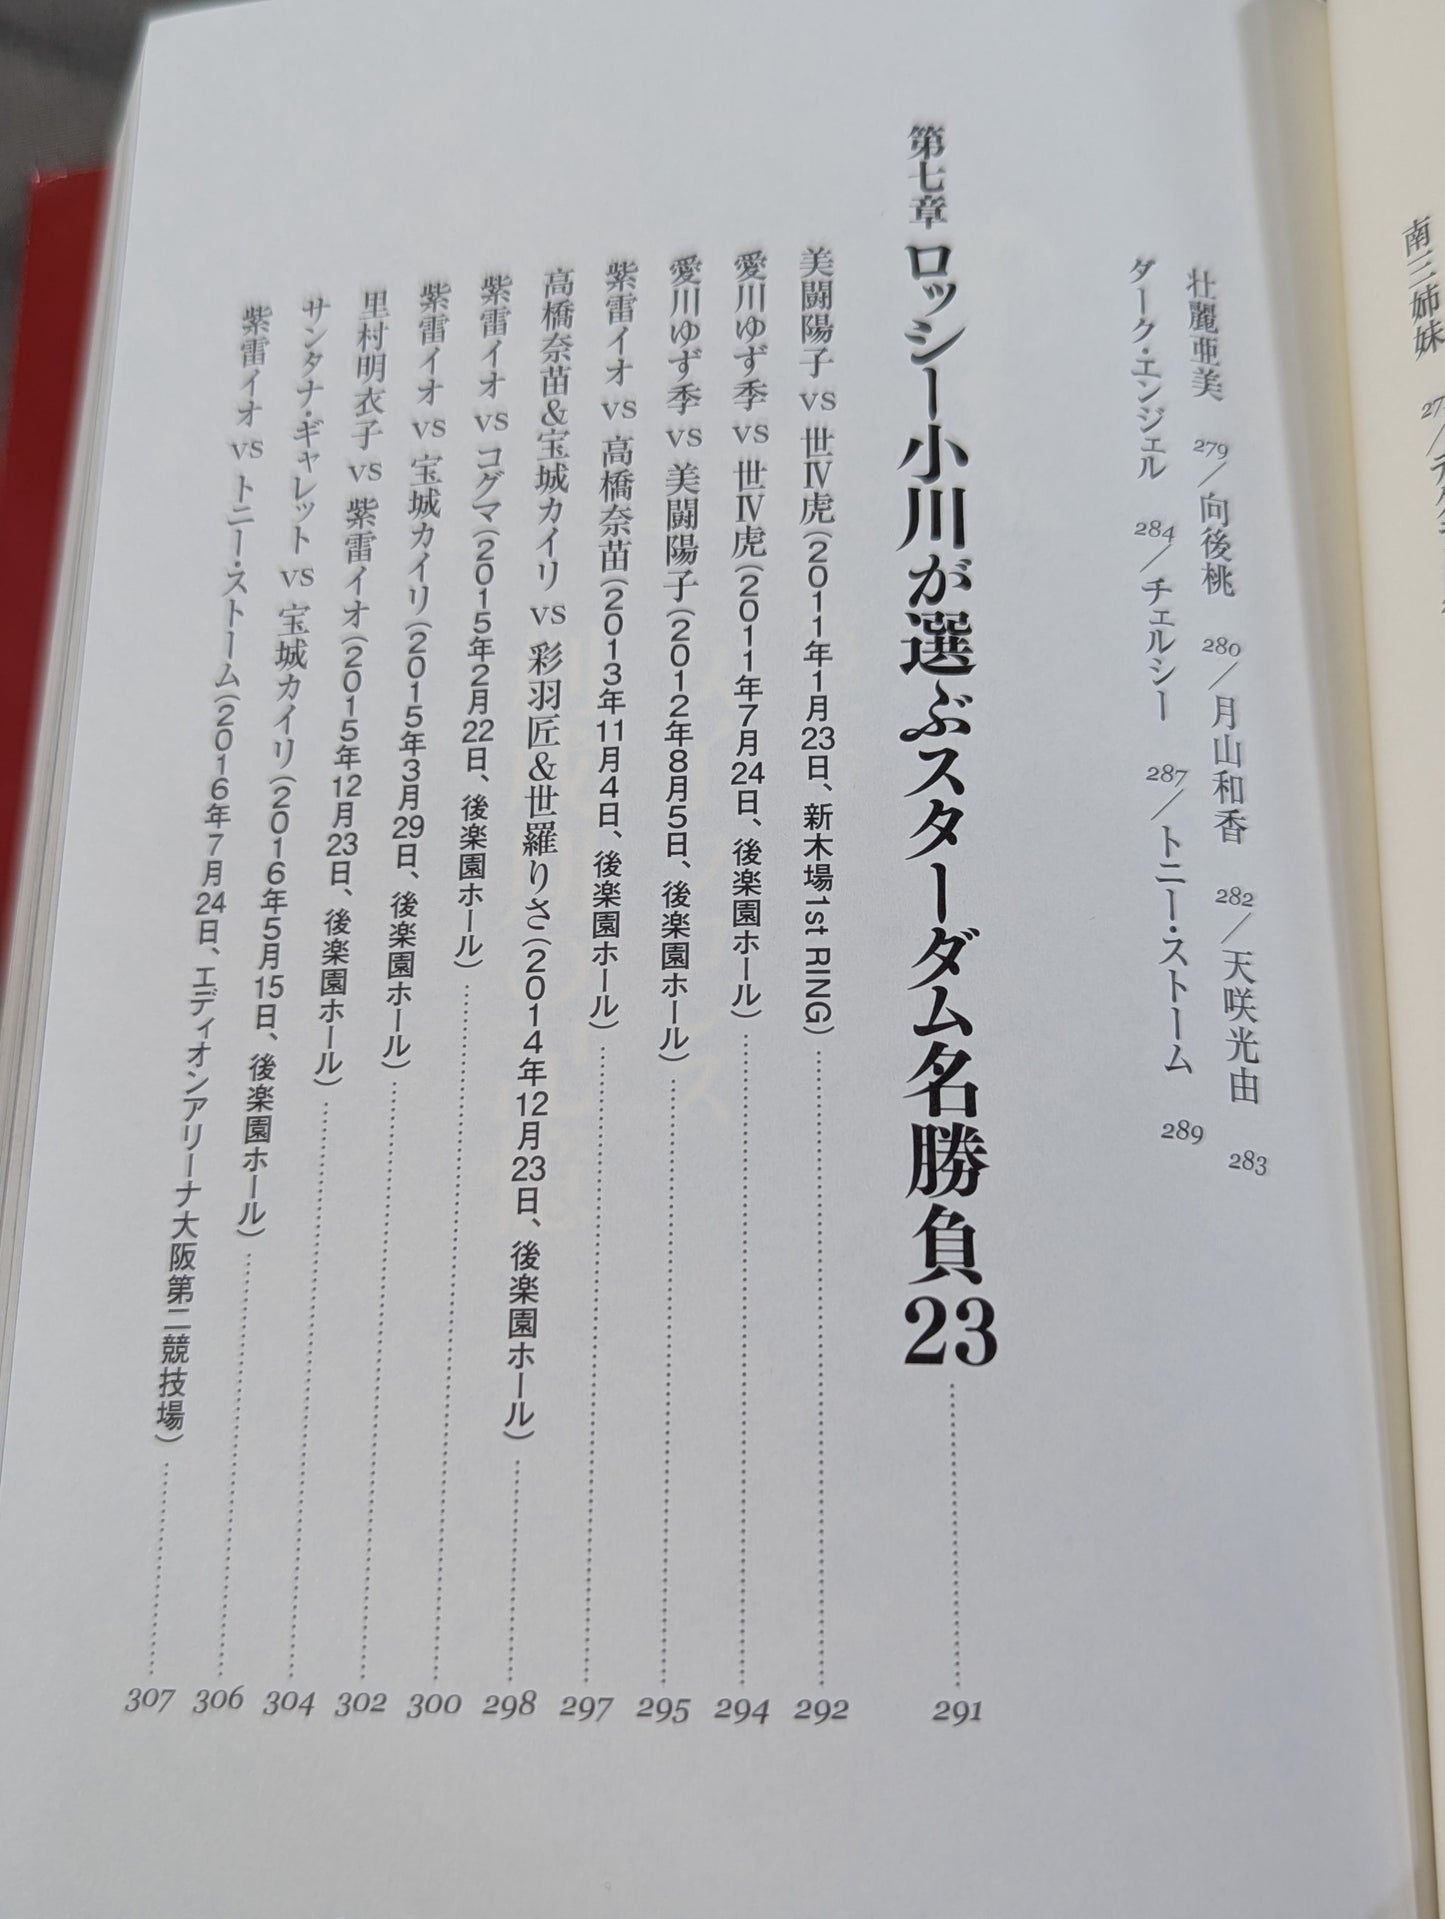 南三姉妹
壮麗亜美 279／向後桃 280／月山和香 282／天咲光由 283
ダーク・エンジェル 284／チェルシー 287／トニー・ストーム 289
第七章 ロッシー小川が選ぶスターダム名勝負23 291
美闘陽子 vs 世Ⅳ虎(2011年1月23日、新木場1st RING) 292
愛川ゆず季 vs 世Ⅳ虎(2011年7月24日、後楽園ホール) 294
愛川ゆず季 vs 美闘陽子(2012年8月5日、後楽園ホール) 295
紫雷イオ vs 高橋奈苗(2013年11月4日、後楽園ホール) 297
高橋奈苗&宝城カイリ vs 彩羽匠&世羅りさ(2014年12月23日、後楽園ホール) 298
紫雷イオ vs コグマ(2015年2月22日、後楽園ホール) 300
紫雷イオ vs 宝城カイリ(2015年3月29日、後楽園ホール) 302
里村明衣子 vs 紫雷イオ(2015年12月23日、後楽園ホール) 304
サンタナ・ギャレット vs 宝城カイリ(2016年5月15日、後楽園ホール) 306
紫雷イオ vs トニー・ストーム(2016年7月24日、エディオンアリーナ大阪第二競技場) 307